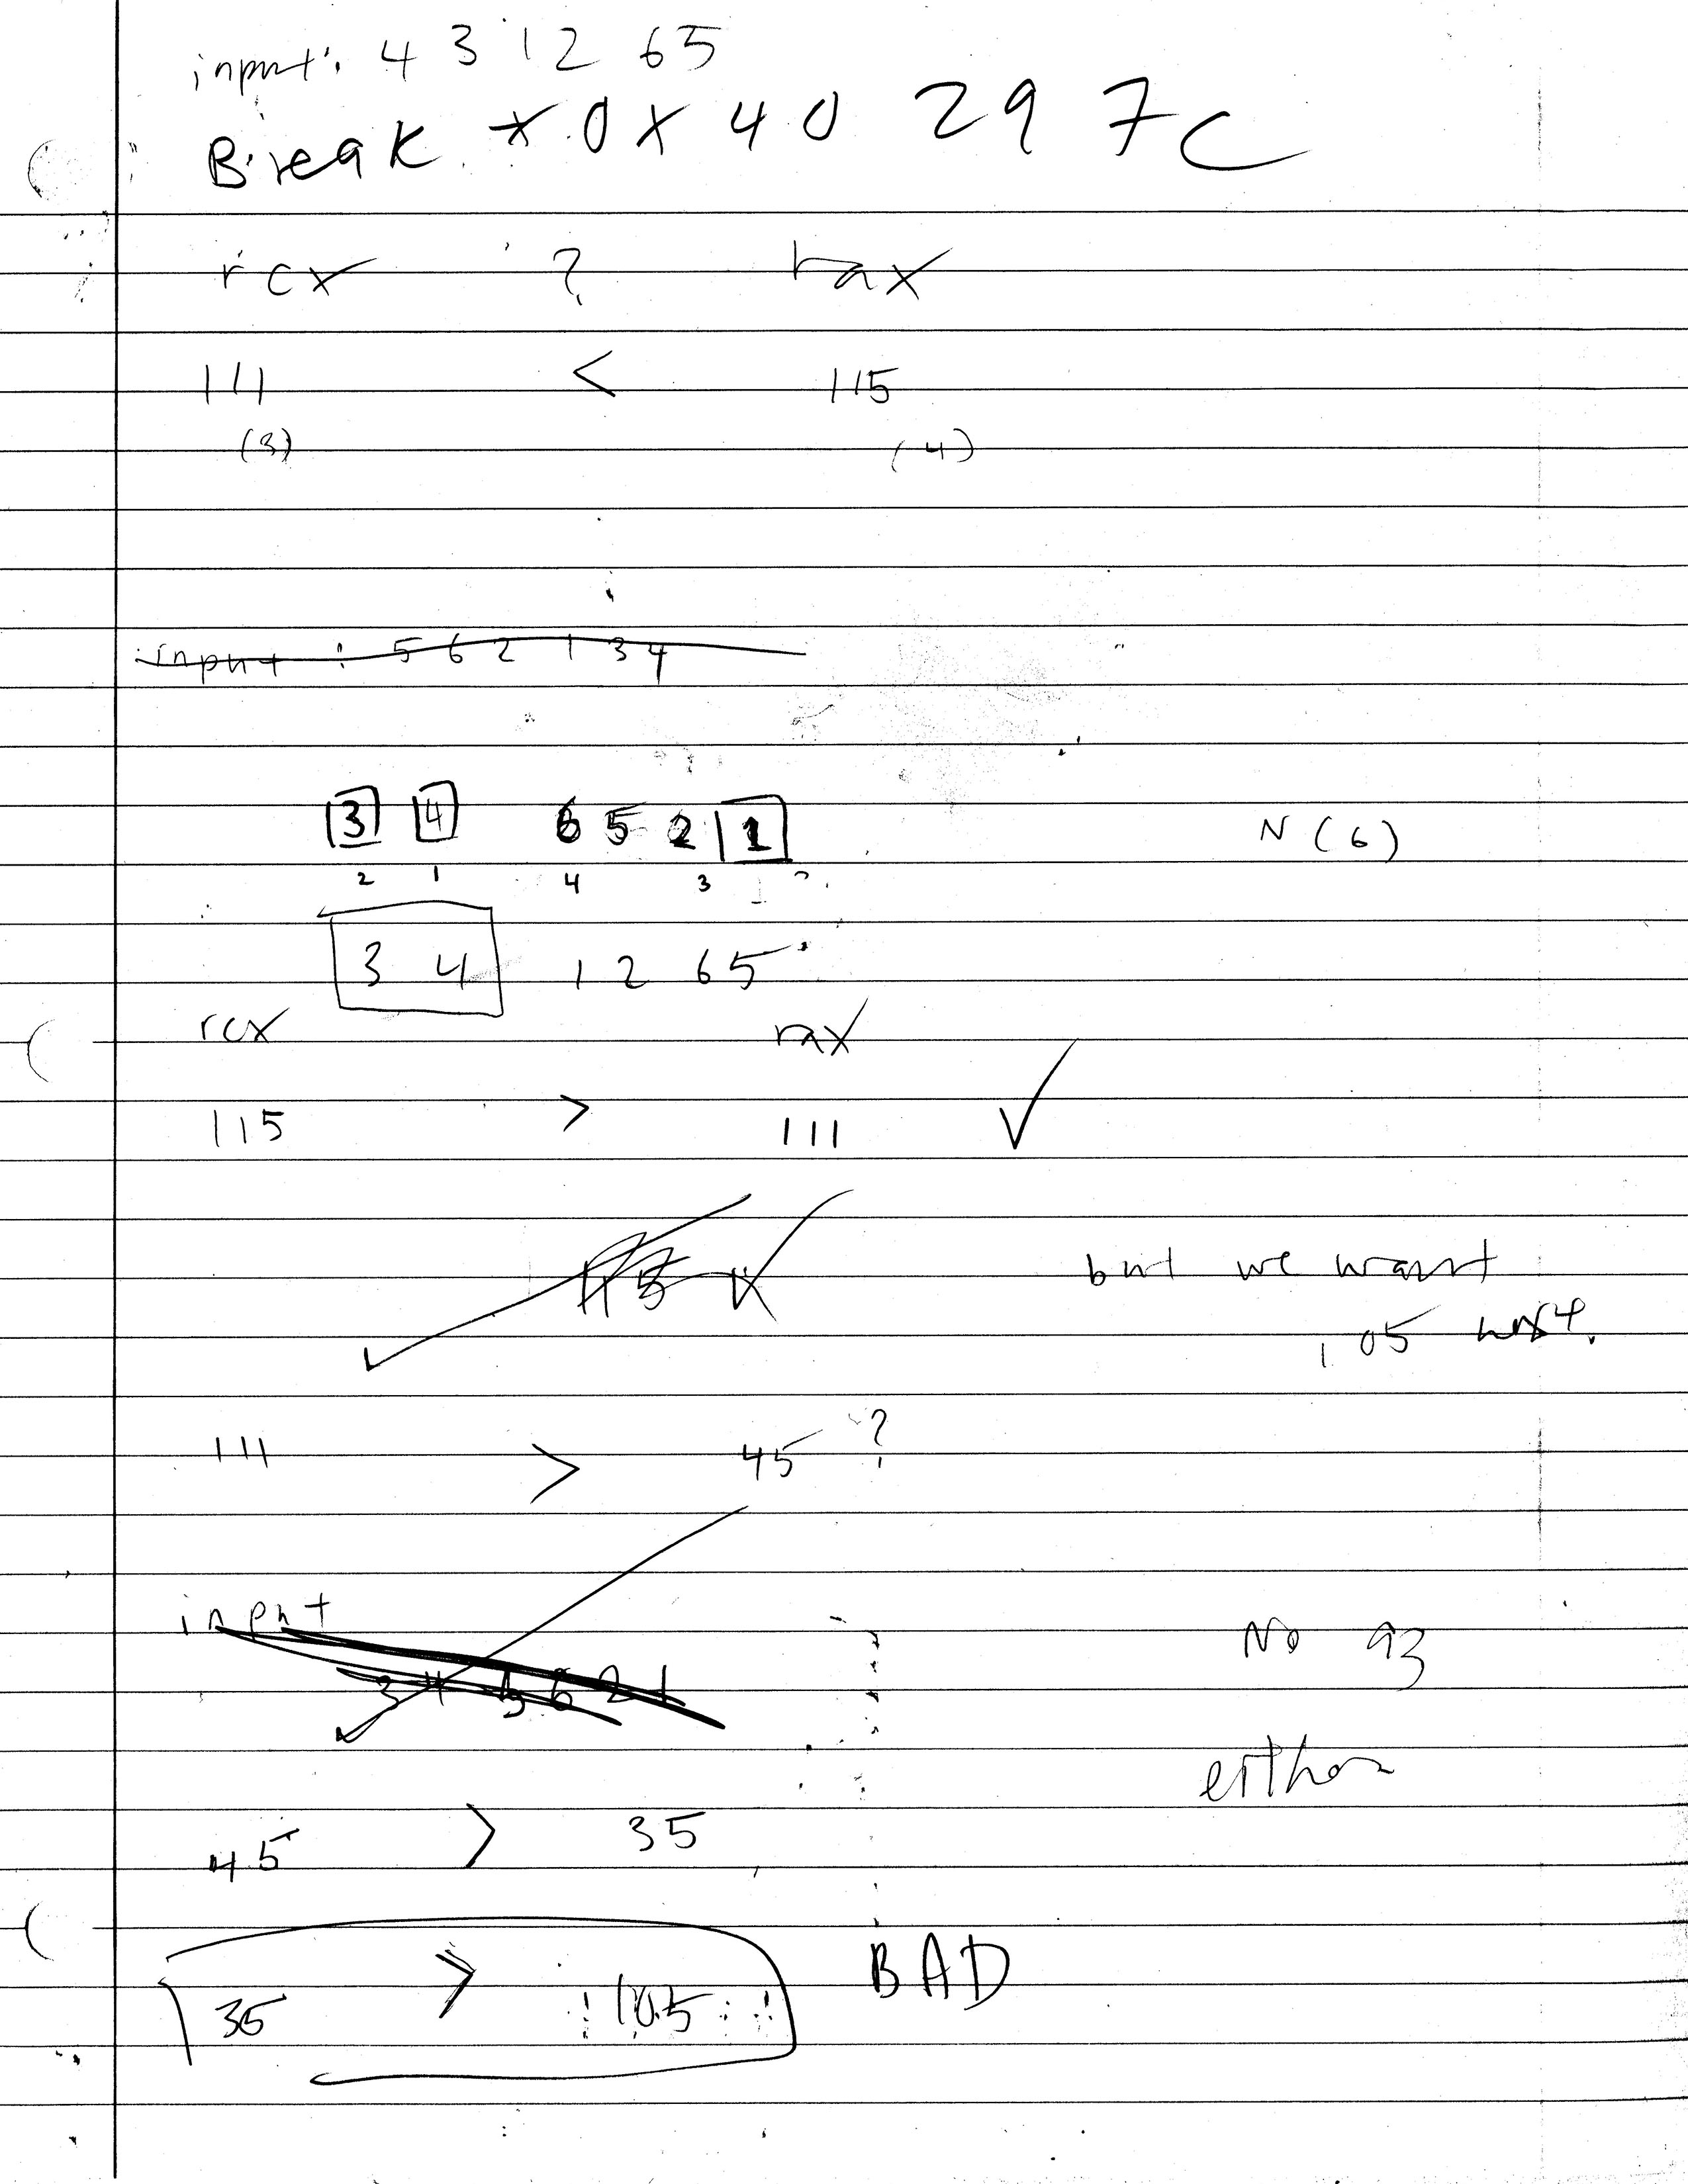 input: 4 3 1 2 6 5
Break *0x40 29 7c
rcx ? rax
111 < 115
(3) (4)
input : 5 6 2 1 3 4
3 4 6 5 2 1 N (6)
2 1 4 3
3 4 1 2 6 5
rcx rax
115 > 111 ✓
but we want
105 next.
111 > 45 ?
input
3 4 5 6 2 1
No 93
either
45 > 35
35 > 105 BAD